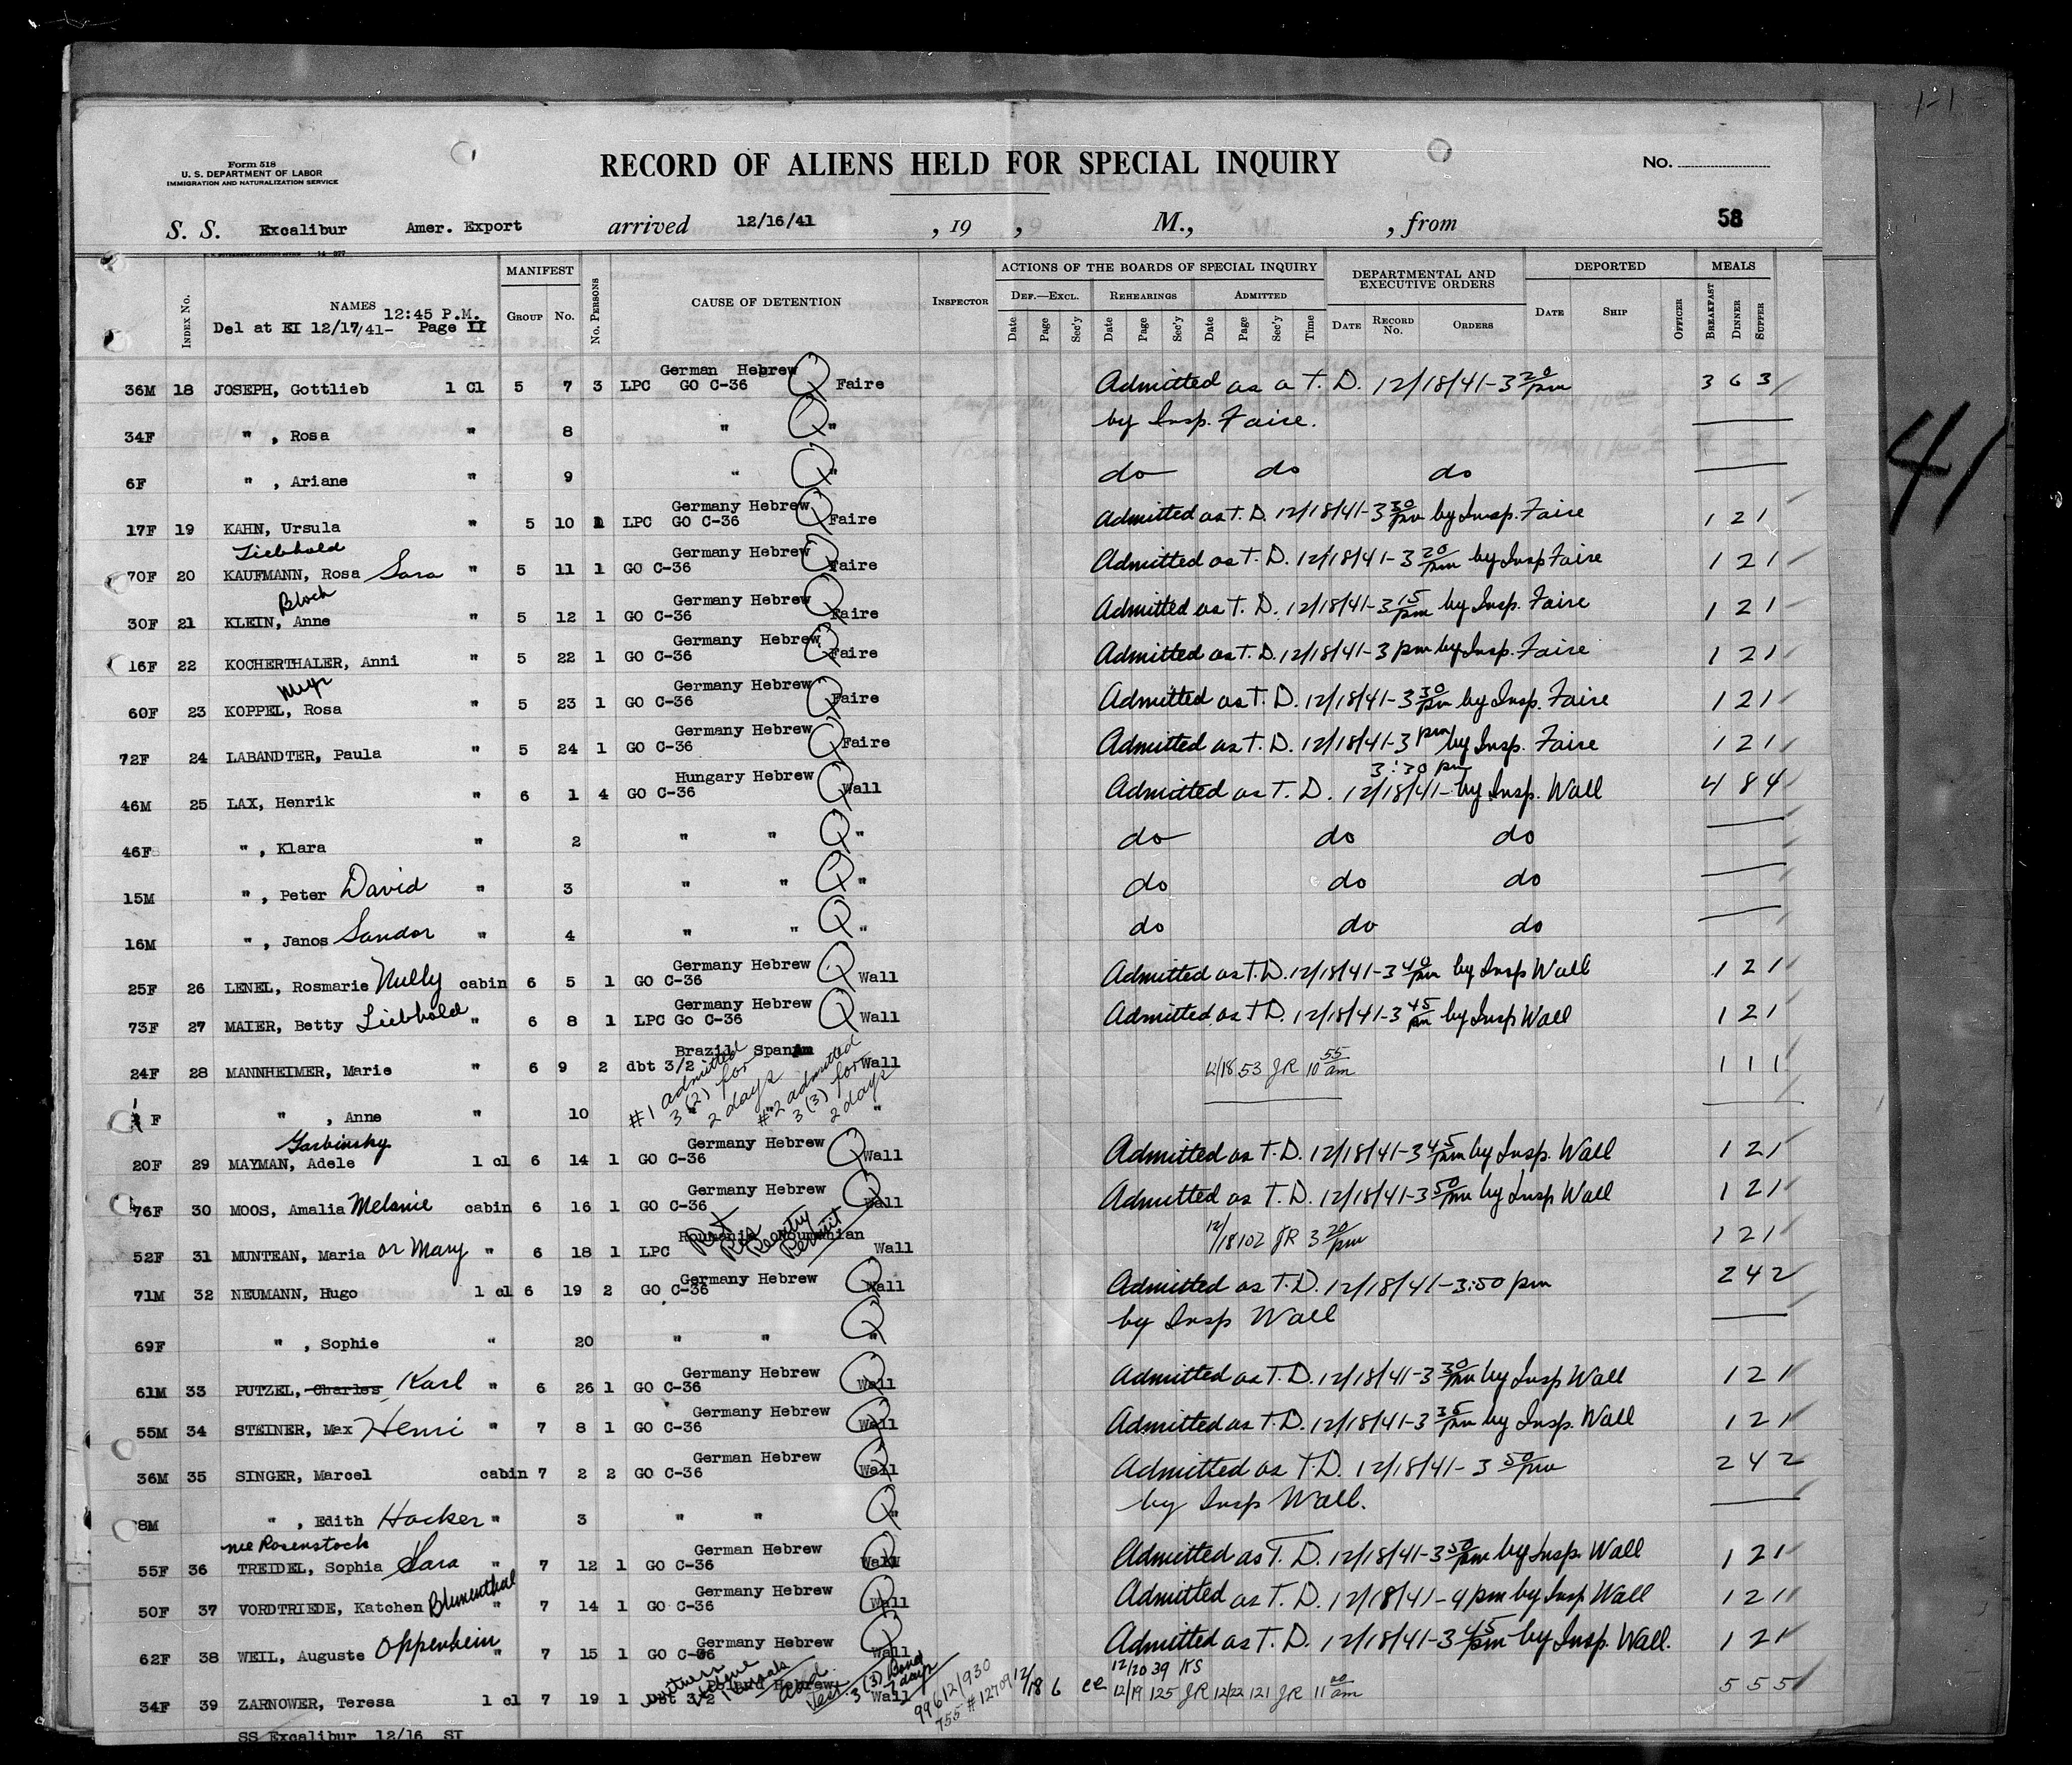 1-1
Form 518
U. S. DEPARTMENT OF LABOR
IMMIGRATION AND NATURALIZATION SERVICE
RECORD OF ALIENS HELD FOR SPECIAL INQUIRY
No.
S. S. Excalibur Amer. Export arrived 12/16/41 , 19 , M., , from 58
Index No. NAMES MANIFEST Group No. No. Persons CAUSE OF DETENTION Inspector ACTIONS OF THE BOARDS OF SPECIAL INQUIRY DEPARTMENTAL AND EXECUTIVE ORDERS DEPORTED MEALS
Def.—Excl. Rehearings Admitted
Date Page Sec'y Date Page Sec'y Date Page Sec'y Time Date Record No. Orders Date Ship Officer Breakfast Dinner Supper
12:45 P.M.
Del at EI 12/17/41- Page II
German Hebrew
36M 18 JOSEPH, Gottlieb 1 Cl 5 7 3 LPC GO C-36 Q Faire Admitted as a T. D. 12/18/41-3 20/pm 3 6 3
34F " , Rosa " 8 " Q " by Insp. Faire.
6F " , Ariane " 9 " Q " do do do
Germany Hebrew
17F 19 KAHN, Ursula " 5 10 1 LPC GO C-36 Q Faire Admitted as T. D. 12/18/41-3 30/pm by Insp. Faire 1 2 1
Liebhold
Germany Hebrew
70F 20 KAUFMANN, Rosa Sara " 5 11 1 GO C-36 Q Faire Admitted as T. D. 12/18/41-3 20/pm by Insp Faire 1 2 1
Bloch
Germany Hebrew
30F 21 KLEIN, Anne " 5 12 1 GO C-36 Q Faire Admitted as T. D. 12/18/41-3 15/pm by Insp. Faire 1 2 1
Germany Hebrew
16F 22 KOCHERTHALER, Anni " 5 22 1 GO C-36 Q Faire Admitted as T. D. 12/18/41-3 pm by Insp. Faire 1 2 1
Germany Hebrew
60F 23 KOPPEL, Rosa " 5 23 1 GO C-36 Q Faire Admitted as T. D. 12/18/41-3 30/pm by Insp. Faire 1 2 1
Germany Hebrew
72F 24 LABANDTER, Paula " 5 24 1 GO C-36 Q Faire Admitted as T. D. 12/18/41-3 pm by Insp. Faire 1 2 1
Hungary Hebrew 3:30 pm
46M 25 LAX, Henrik " 6 1 4 GO C-36 Q Wall Admitted as T. D. 12/18/41- by Insp. Wall 4 8 4
46F " , Klara " 2 " " Q " do do do
15M " , Peter David " 3 " " Q " do do do
16M " , Janos Sandor " 4 " " Q " do do do
Germany Hebrew
25F 26 LENEL, Rosmarie Nelly cabin 6 5 1 GO C-36 Q Wall Admitted as T. D. 12/18/41-3 40/pm by Insp Wall 1 2 1
Germany Hebrew
73F 27 MAIER, Betty Liebhold " 6 8 1 LPC Go C-36 Q Wall Admitted as T D. 12/18/41-3 45/pm by Insp Wall 1 2 1
Brazil
24F 28 MANNHEIMER, Marie " 6 9 2 dbt 3/2 Wall 12/18 53 JR 10 55/am 1 1 1
#1 admitted 3 (2) for 2 days #2 admitted 3 (3) for 2 days
F " , Anne " 10 "
Garbinsky
Germany Hebrew
20F 29 MAYMAN, Adele 1 cl 6 14 1 GO C-36 Q Wall Admitted as T. D. 12/18/41-3 45/pm by Insp. Wall 1 2 1
Germany Hebrew
76F 30 MOOS, Amalia Melanie cabin 6 16 1 GO C-36 Q Wall Admitted as T. D. 12/18/41-3 50/pm by Insp Wall 1 2 1
Ret Res Reentry Permit
52F 31 MUNTEAN, Maria or Mary " 6 18 1 LPC Wall 12/18 102 JR 3 20/pm 1 2 1
Germany Hebrew
71M 32 NEUMANN, Hugo 1 cl 6 19 2 GO C-36 Q Wall Admitted as T. D. 12/18/41-3:50 pm 2 4 2
69F " , Sophie " 20 " " Q " by Insp Wall
Germany Hebrew
61M 33 PUTZEL, Charles Karl " 6 26 1 GO C-36 Q Wall Admitted as T. D. 12/18/41-3 30/pm by Insp Wall 1 2 1
Germany Hebrew
55M 34 STEINER, Max Henri " 7 8 1 GO C-36 Q Wall Admitted as T. D. 12/18/41-3 35/pm by Insp. Wall 1 2 1
German Hebrew
36M 35 SINGER, Marcel cabin 7 2 2 GO C-36 Q Wall Admitted as T. D. 12/18/41-3 50/pm 2 4 2
8M " , Edith Hacker " 3 " " Q " by Insp Wall.
nee Rosenstock
German Hebrew
55F 36 TREIDEL, Sophia Sara " 7 12 1 GO C-36 Q Wall Admitted as T. D. 12/18/41-3 50/pm by Insp. Wall 1 2 1
Germany Hebrew
50F 37 VORDTRIEDE, Katchen Blumenthal " 7 14 1 GO C-36 Q Wall Admitted as T. D. 12/18/41-4 pm by Insp Wall 1 2 1
Germany Hebrew
62F 38 WEIL, Auguste Oppenheim " 7 15 1 GO C-36 Q Wall Admitted as T. D. 12/18/41-3 45/pm by Insp. Wall. 1 2 1
Poland Hebrew 3 (3) Bond 12/20 39 KS
34F 39 ZARNOWER, Teresa 1 cl 7 19 1 Dbt 3/2 Wall 99612/930 755 #12709 12/18 6 ce 12/19 125 JR 12/22 121 JR 11 00/am 5 5 5
SS Excalibur 12/16 SI
41